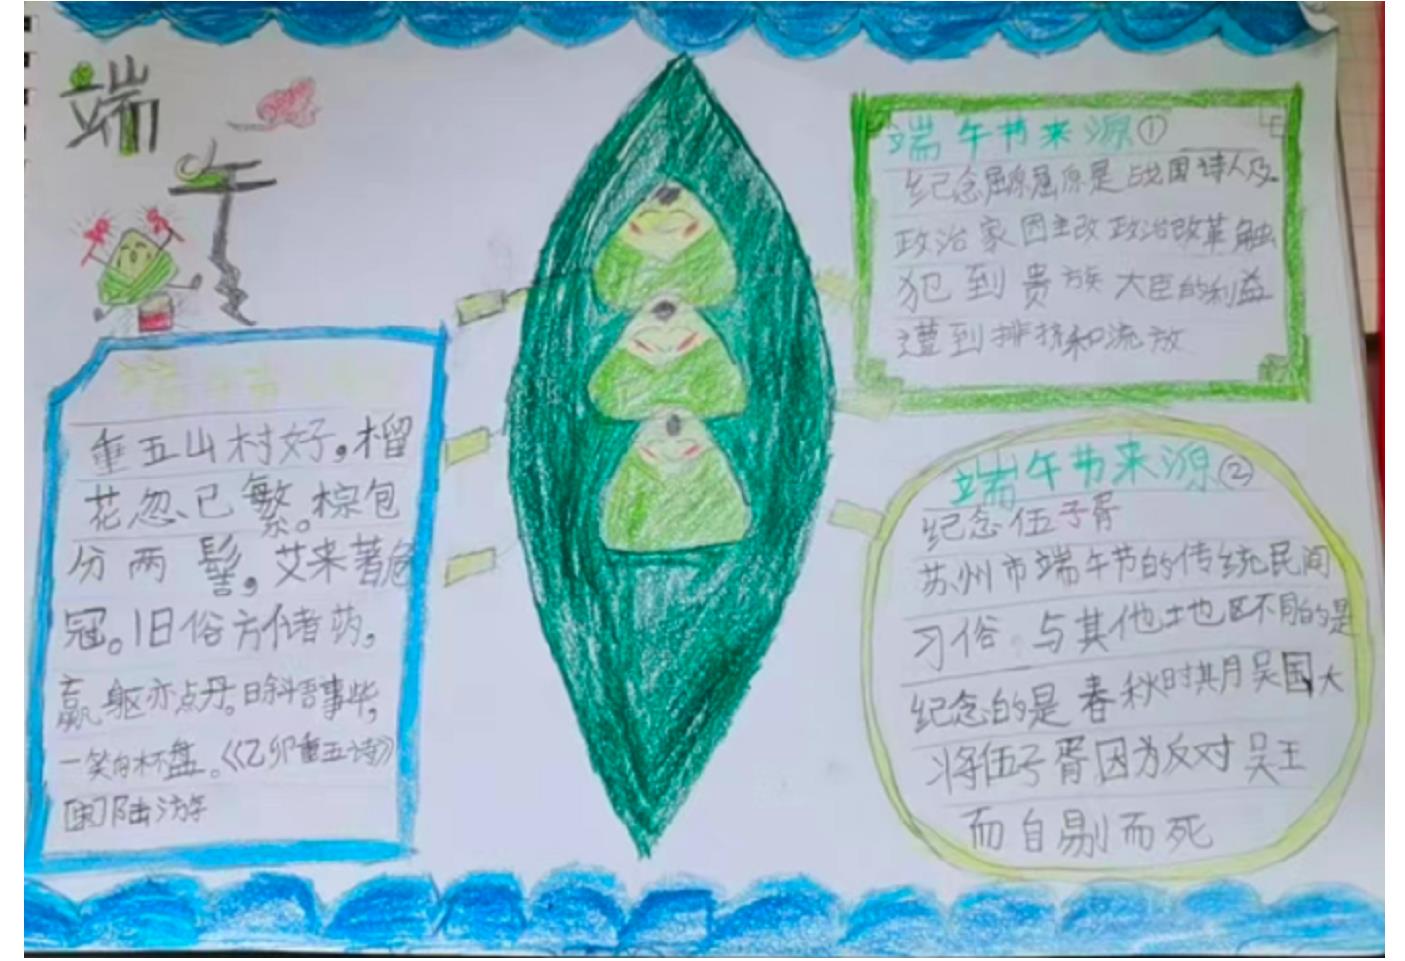 端
午
重五山村好。榴
花忽、已繁。棕包
分两髻，艾来著危
冠。旧俗方储药，
羸躯亦点丹。日斜吾事毕，
一笑向杯盘。《乙卯重五诗》
[宋]陆游
端午节来源①
纪念屈原屈原是战国诗人及
政治家因主改政治改革触
犯到贵族大臣的利益
遭到排挤和流放
端午节来源②
纪念伍子胥
苏州市端午节的传统民间
习俗与其他土也区不同的是
纪念的是春秋时其月吴国大
将伍子胥因为反对吴王
而自刎而死